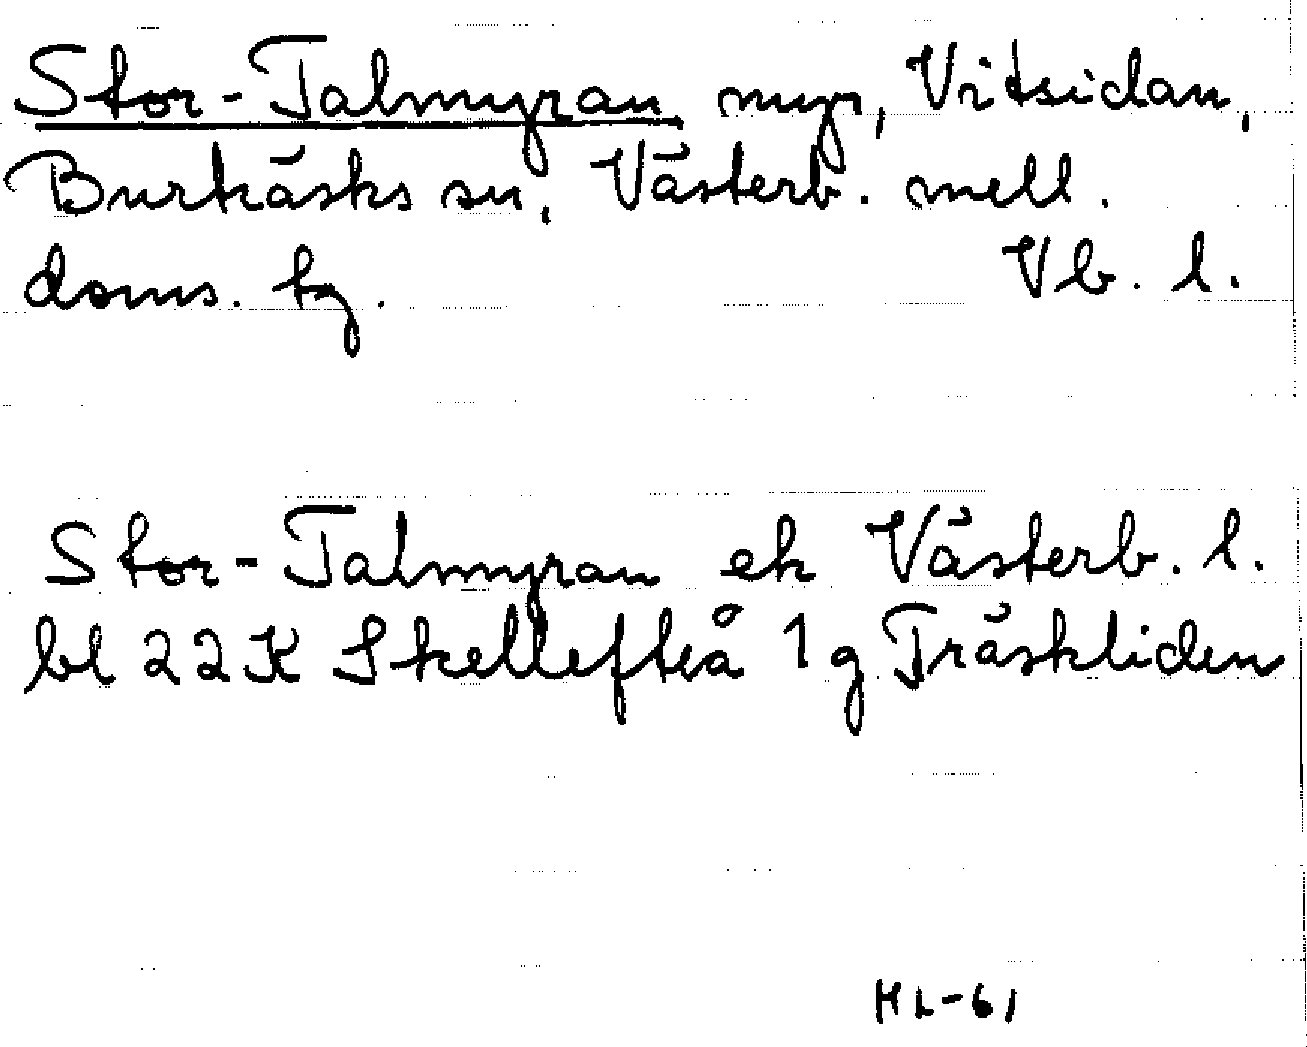 Stor-Talmyran myr, Vitsidan,
Burträsks sn, Västerb. mell.
doms. tg.
Vb. l.
Stor-Talmyran ek Västerb. l.
bl 22K Skellefteå 1g Träskliden
HL-61